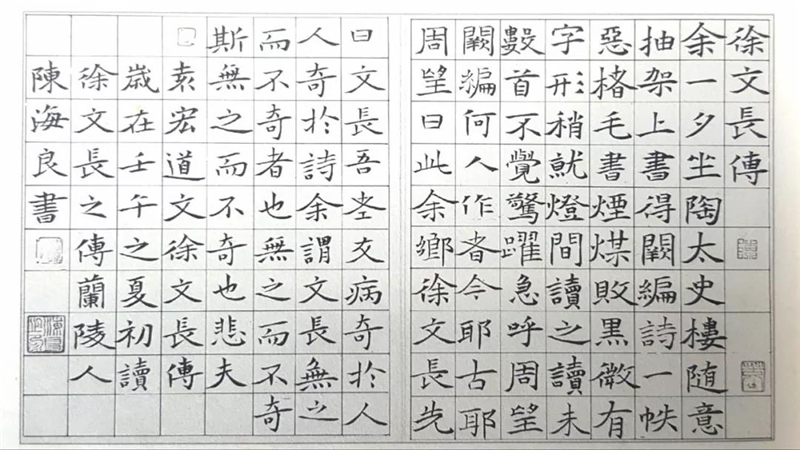 徐文長傳
余一夕坐陶太史樓隨意
抽架上書得闕編詩一帙
惡楮毛書煙煤敗黑微有
字形稍就燈間讀之讀未
數首不覺驚躍急呼周望
闕編何人作者今耶古耶
周望曰此余鄉徐文長先
曰文長吾老友病奇於人
人奇於詩余謂文長無之
而不奇者也無之而不奇
斯無之而不奇也悲夫
袁宏道文徐文長傳
歲在壬午之夏初讀
徐文長之傳蘭陵人
陳海良書